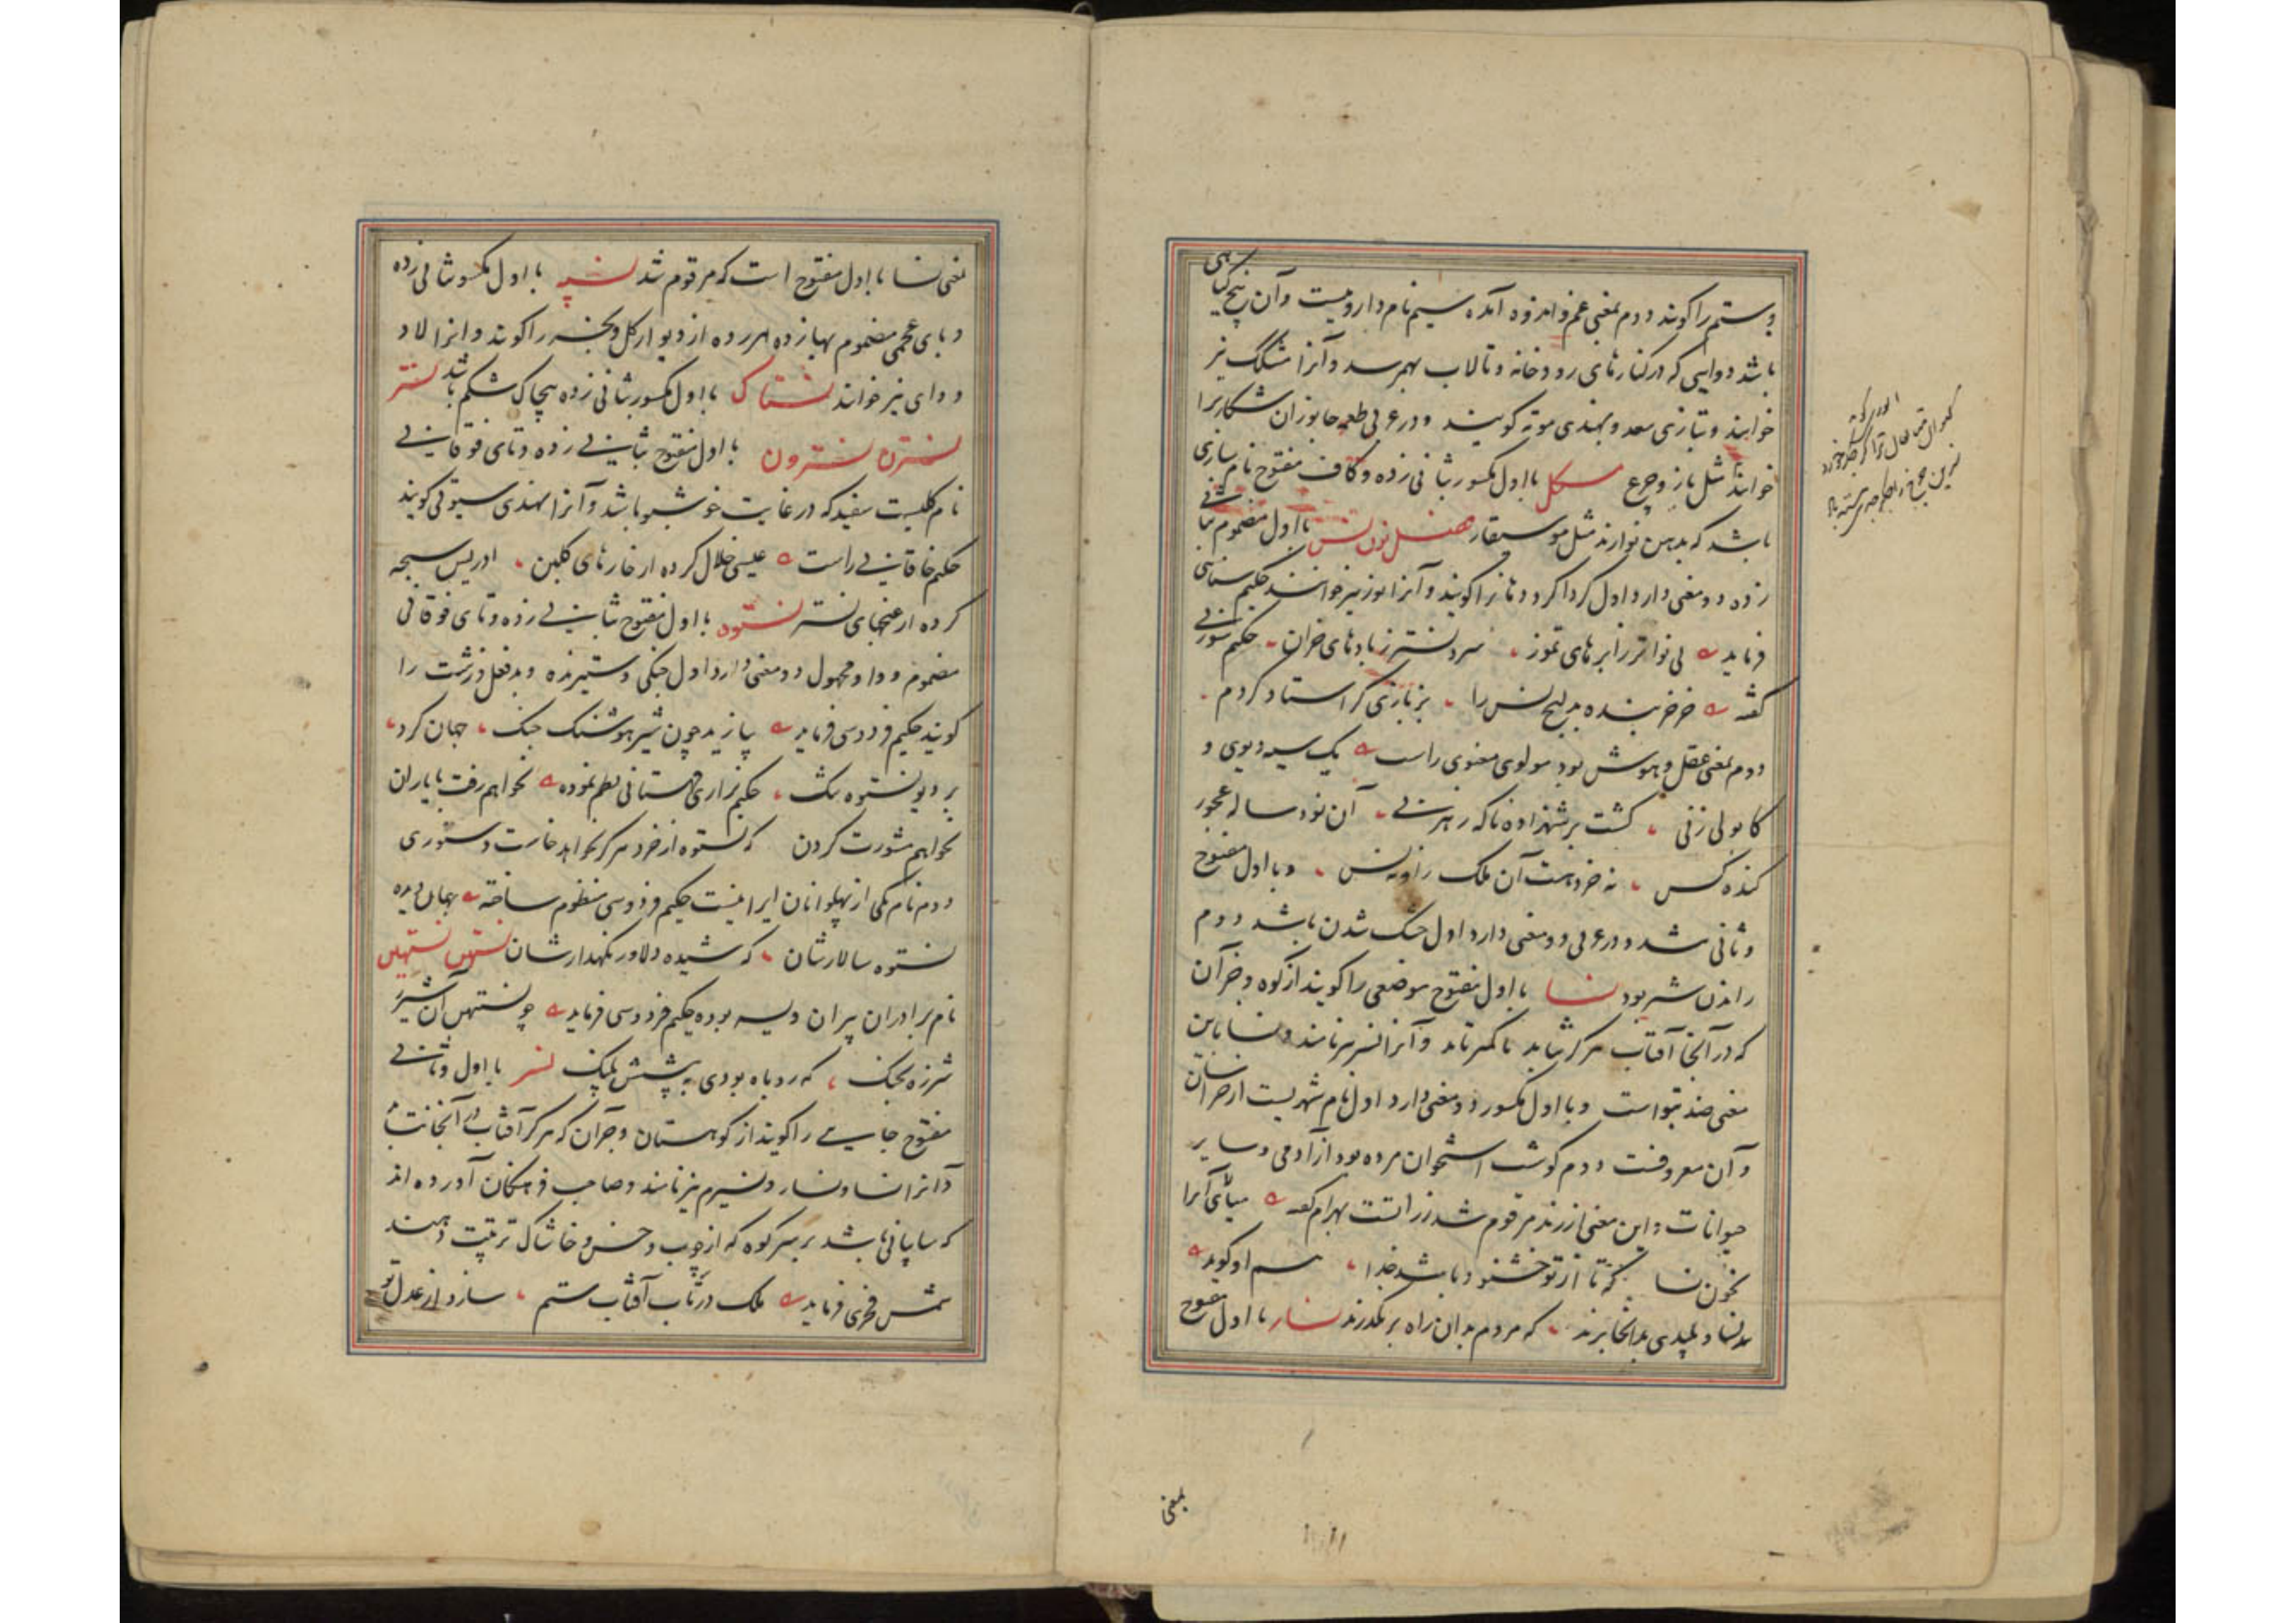 و ستم را گویند دوم بمعنی غم و اندوه آمده سیم نام داروییست و آن بیخ گیاهی
باشد دوایی که در کنارهای رودخانه و تالاب بهم رسد و آنرا مشکک نیز
خوانند و بتازی سعد و بهندی موته گویند و در عربی طعمه جانوران شکاریرا
خوانند مثل باز و چرغ مسکل با اول مکسور بثانی زده و کاف مفتوح نام سازی
باشد که بدهن نوازند مثل موسیقار فصل نون نس با اول مضموم بثانی
زده دو معنی دارد اول گرداگرد دهانرا گویند و آنرا پوز نیز خوانند حکیم سنایی
فرماید بی نواتر ز ابرهای تموز سردنس تر ز بادهای خزان حکیم سوزنی
گفته خر خمخانه بدلیح نس را بزبازی گر استاد کردم
دوم بمعنی عقل و هوش بود مولوی معنوی راست یک سیه دیوی و
کابولی زنی گشت بر شهزاده ناگه رهزنی آن نود ساله عجوز
گنده کس نه خرد هشت آن ملک را و نه نس و با اول مفتوح
و ثانی مشدد در عربی دو معنی دارد اول خشک شدن باشد دوم
راندن شتر بود نسا با اول مفتوح موضعی را گویند از کوه و جز آن
که در آنجا آفتاب هرگز نتابد یا کمتر تابد و آنرا نسر نیز نامند و نسا باین
معنی ضد بتو است و با اول مکسور دو معنی دارد اول نام شهریست از خراسان
و آن معروفست دوم گوشت استخوان مرده بود از آدمی و سایر
حیوانات و این معنی از زند مرقوم شد زراتشت بهرام گفته میالای آنرا
بخون نسا که تا از تو خشنود باشد خدا هم او گوید
نسا و پلیدی بدانجا برند که مردم بدان راه بر نگذرند نسار با اول مفتوح
بمعنی
بمعنی نسا با اول مفتوح است که مرقوم شد نسپه با اول مکسور بثانی زده
و بای عجمی مضموم بهازده هر رده از دیوار گل و پخسه را گویند و آنرا لاد
و دای نیز خوانند نستاک با اول مکسور بثانی زده پیچاک شکم باشد نستر
نسترن نسترون با اول مفتوح بثانی زده و تای فوقانی
نام گلیست سفید که در غایت خوشبو باشد و آنرا بهندی سیوتی گویند
حکیم خاقانی راست عیسی خلال کرده از خارهای گلبن ادریس سبحه
کرده از غنچهای نستر نستوه با اول مفتوح بثانی زده و تای فوقانی
مضموم و واو مجهول دو معنی دارد اول جنگی و ستیزنده و بدفعل و زشت را
گویند حکیم فردوسی فرماید بیازید چون شیر هوشنگ چنگ جهان کرد
بر دیو نستوه تنگ حکیم نزاری قهستانی نظم نموده نخواهم رفت با یاران
نخواهم مشورت کردن که نستوه از خرد هرگز نخواهد خاست دستوری
دوم نام یکی از پهلوانان ایرانیست حکیم فردوسی منظوم ساخته جهان دیده
نستوه سالارشان که شیده دلاور نگهدارشان نستهن نستیهن
نام برادران پیران ویسه بوده حکیم فردوسی فرماید چو نستیهن آن شیر
شرزه بجنگ که روباه بودی به پیشش پلنگ نسر با اول و ثانی
مفتوح جایی را گویند از کوهستان و جز آن که هرگز آفتاب در آنجا نتابد
و آنرا نسا و نسار و نسرم نیز نامند و صاحب فرهنگان آورده اند
که سایبانی باشد بر سر کوه که از چوب و خس و خاشاک ترتیب دهند
شمس فخری فرماید ملک در تاب آفتاب ستم سازد از عدل تو